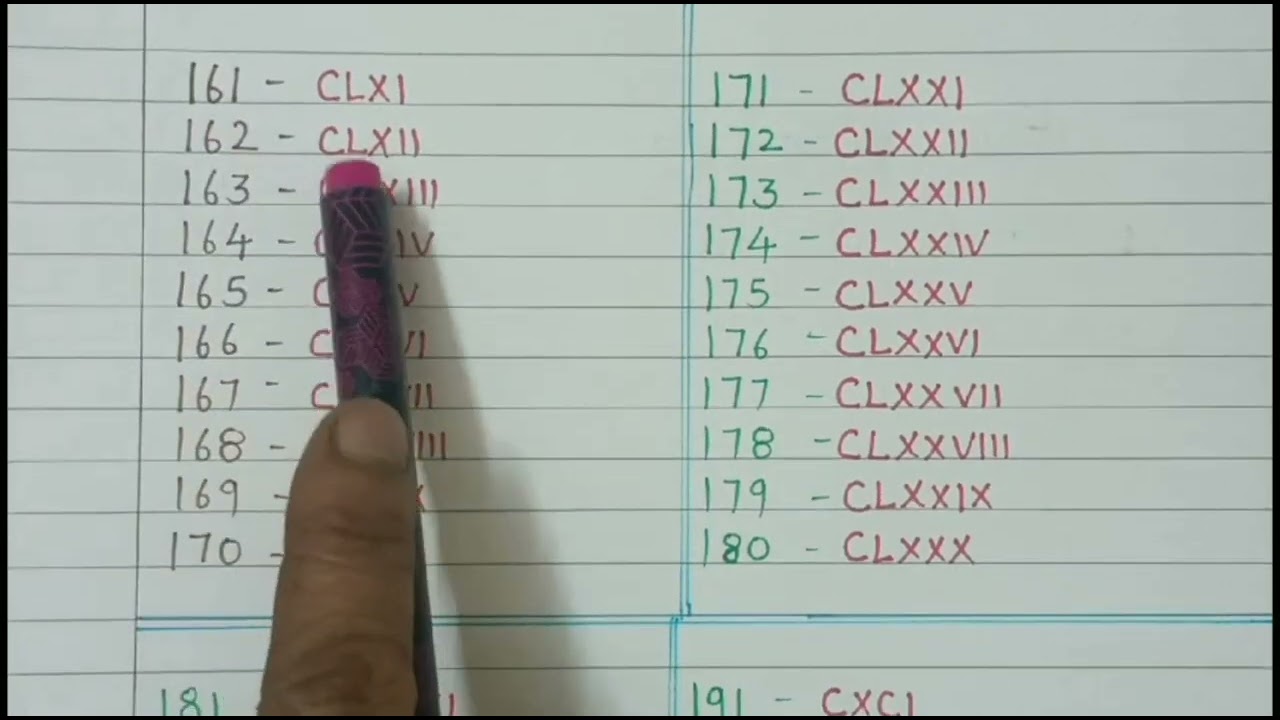 161 - CLXI
162 - CLXII
163 -
164 -
165 -
166 -
167 -
168 -
169 -
170 -
171 - CLXXI
172 - CLXXII
173 - CLXXIII
174 - CLXXIV
175 - CLXXV
176 - CLXXVI
177 - CLXXVII
178 - CLXXVIII
179 - CLXXIX
180 - CLXXX
181
191 - CXCI